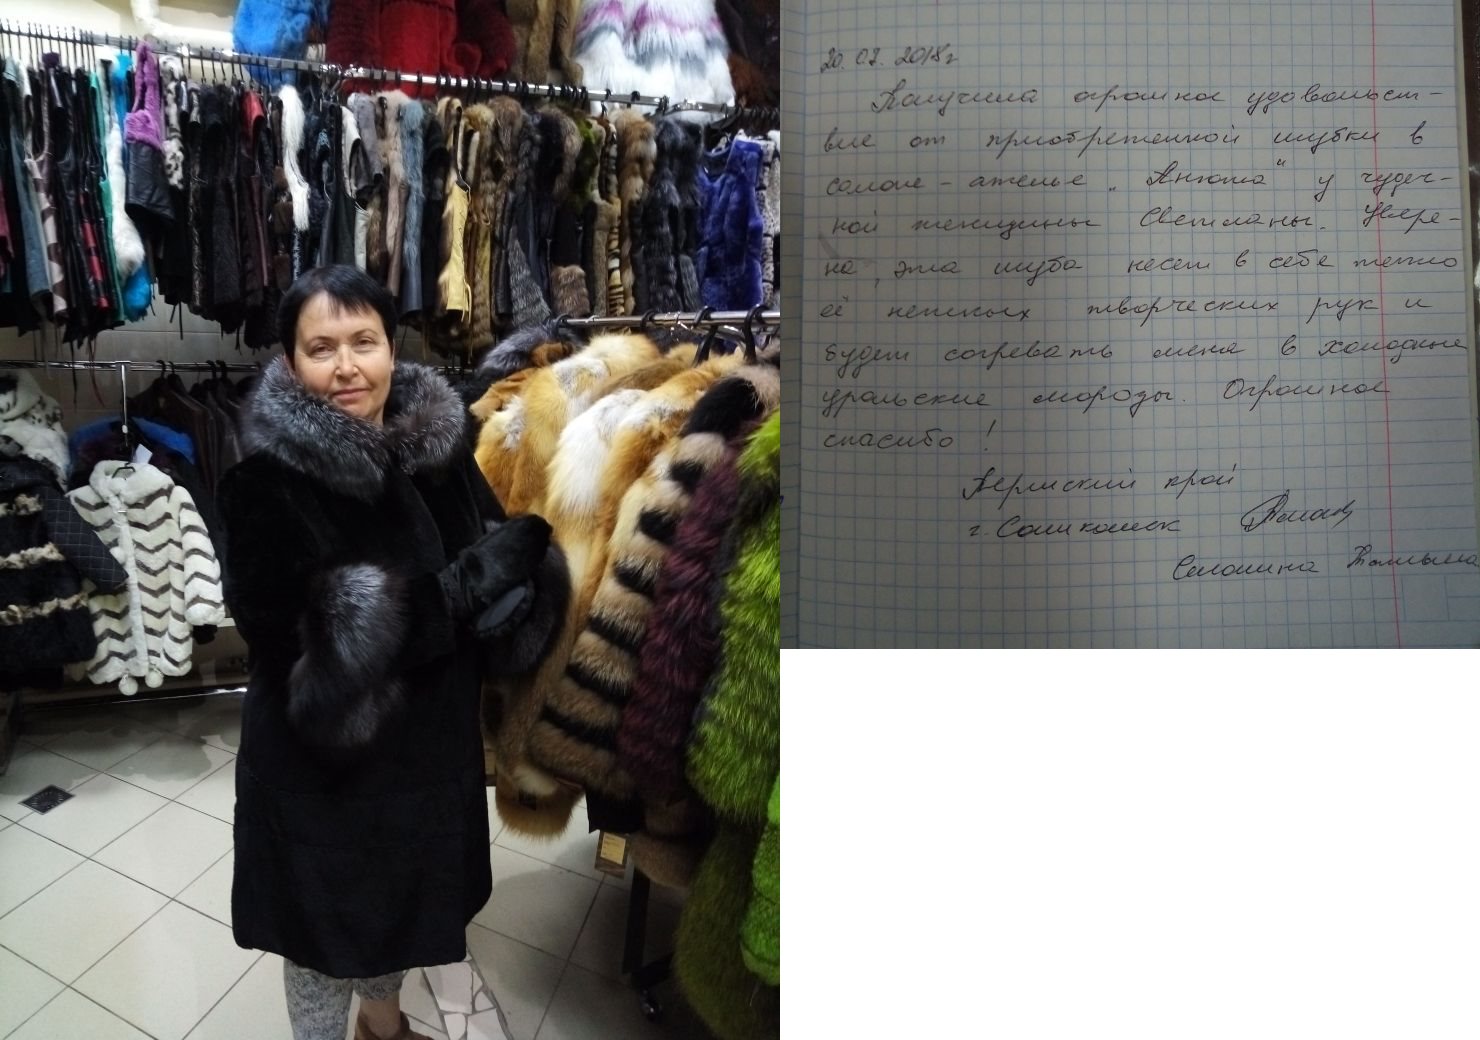 20.07.2018г
Получила огромное удовольст-
вие от приобретенной шубки в
салоне-ателье „Анюта“ у чудес-
ной женщины Светланы. Увере-
на, эта шуба несет в себе тепло
её нежных творческих рук и
будет согревать меня в холодные
уральские морозы. Огромное
спасибо!
Пермский край
г. Соликамск
Татьяна